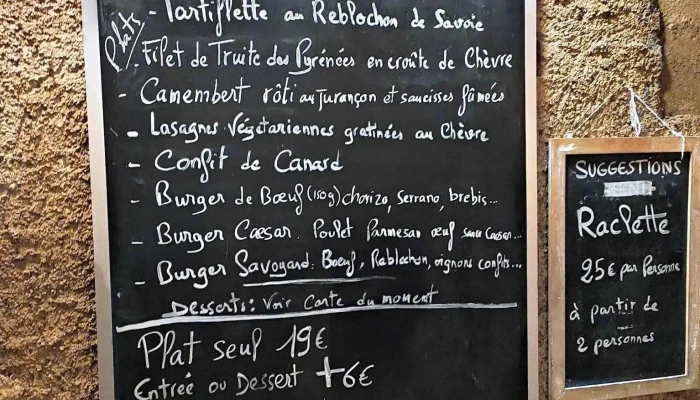 Plats
- Tartiflette au Reblochon de Savoie
- Filet de Truite des Pyrénées en croûte de Chèvre
- Camembert rôti au Jurançon et saucisses fumées
- Lasagnes Végétariennes gratinées au Chèvre
- Confit de Canard
- Burger de Bœuf (150g) chorizo, Serrano, brebis...
- Burger Caesar. Poulet Parmesan œuf sauce Caesar...
- Burger Savoyard: Boeuf, Reblochon, oignons confits...
Desserts: Voir Carte du moment
Plat seul 19€
Entrée ou Dessert +6€
SUGGESTIONS
Raclette
25€ par Personne
à partir de
2 personnes